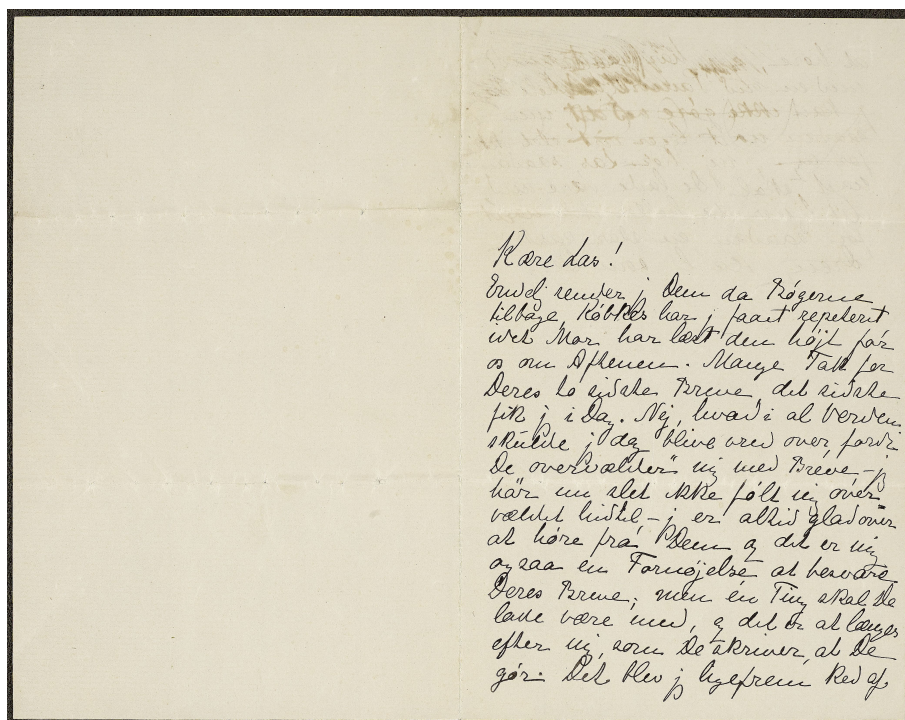 Kære Las!
Endelj sender j Dem da Bøgerne
tilbage, Købkes har j faaet repeteret
idet Mor har læst den højt for
os om Aftenen. Mange Tak for
Deres to sidste Breve, det sidste
fik j i Dag. Nej, hvad i al Verden
skulde j dog blive vred over, fordi
De overvælder" mig med Breve – j
har nu slet ikke følt mig over
vældet hidtil – j er altid glad over
at høre fra Dem og det er mig
ogsaa en Fornøjelse at besvare
Deres Breve; men én Ting skal De
lade være med, og det er at længes
efter mig, som De skriver, at De
gør. Det blev j ligefrem ked af